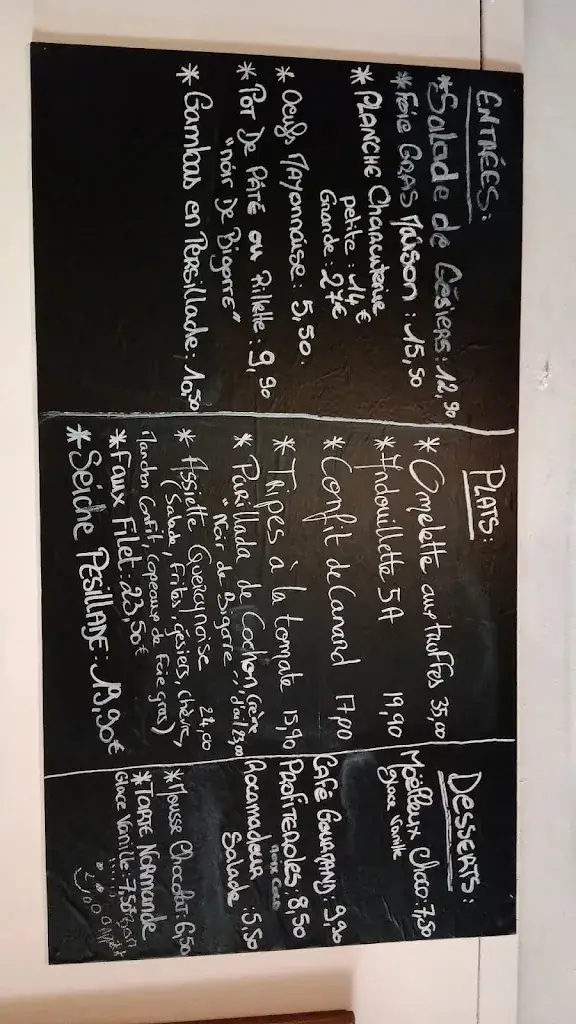 ENTRÉES:
* Salade de Gésiers: 12,90
* Foie GRAS Maison: 15,50
* PLANCHE Charcuterie
petite: 14€
Grande: 27€
* Oeufs Mayonnaise: 5,50.
* POT De PÂTÉ ou Rillette: 9,90
"noir De Bigorre"
* Gambas en PERSILLADE: 10,50
PLATS:
* Omelette aux truffes 35,00
* Andouillette 5A 19,90
* Confit de Canard 17,00
* Tripes à la tomate 15,90
* Parillada de Cochon, Crème
"Noir de Bigorre" d'ail 23,00
* Assiette Quercynoise 24,00
(Salade, Frites, gésiers, chèvre,
Manchon Confit, Copeaux de Foie gras)
* Faux Filet: 23,50€
* Seiche PESILLADE: 19,90€
DESSERTS:
Moëlleux Choco: 7,50
Glace Vanille
Café Gourmand: 9,90
PROFITEROLES: 8,50
Rocamadour 5,50
Salade
* Mousse Chocolat: 6,50
* TARTE NORMANDE
Glace Vanille: 7,50